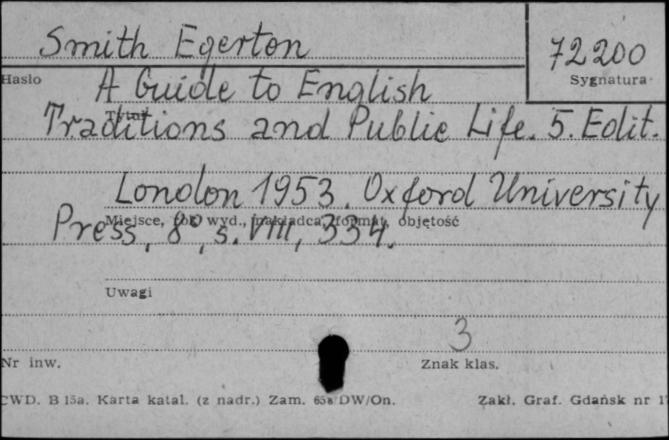 Smith Egerton
72200
Hasło
Sygnatura
A Guide to English
Tytuł
Traditions and Public Life. 5. Edit.
London 1953. Oxford University
Miejsce, rok wyd., nakładca, format, objętość
Press, 8°, s. VIII, 334.
Uwagi
3
Nr inw.
Znak klas.
CWD. B 15a. Karta katal. (z nadr.) Zam. 658 DW/On.
Zakł. Graf. Gdańsk nr 1